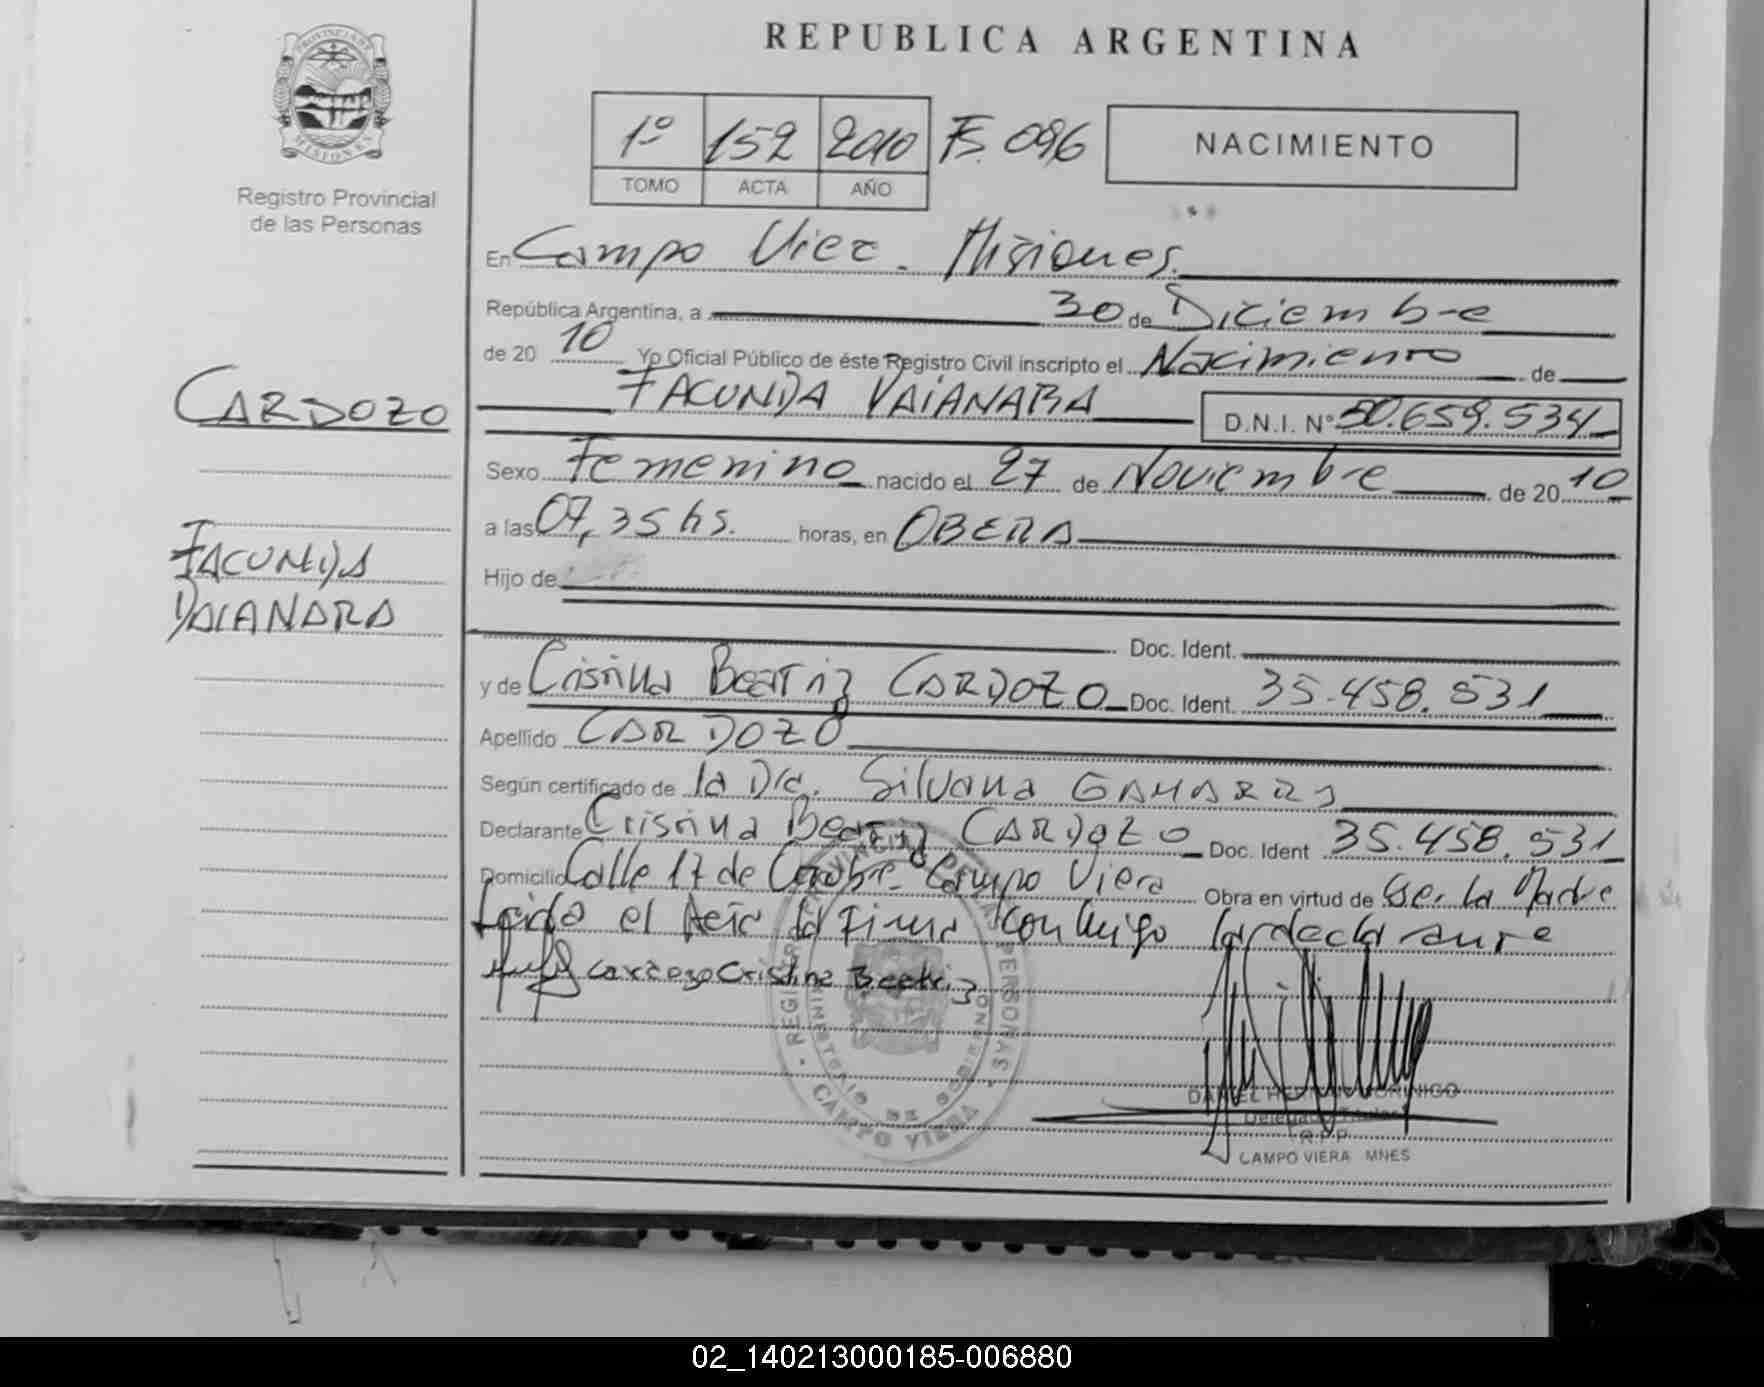 REPUBLICA ARGENTINA
PROVINCIA DE MISIONES
Registro Provincial
de las Personas
1º 152 2010 Fs. 096
TOMO ACTA AÑO
NACIMIENTO
En Campo Viera. Misiones.
República Argentina, a 30 de Diciembre
de 20 10 Yo Oficial Público de éste Registro Civil inscripto el Nacimiento de
CARDOZO
FACUNDA DAIANARA D.N.I. Nº 50.659.534
Sexo Femenino nacido el 27 de Noviembre de 20 10
a las 07,35 hs. horas, en OBERA
FACUNDA
DAIANARA
Hijo de
Doc. Ident.
y de Cristina Beatriz CARDOZO Doc. Ident. 35.458.531
Apellido CARDOZO
Según certificado de la Dra. Silvana GAMARRA
Declarante Cristina Beatriz CARDOZO Doc. Ident 35.458.531
Domicilio Calle 17 de Octubre Campo Viera Obra en virtud de Ser la Madre
Leida el Acta la Firma conmigo la declarante
Cardozo Cristina Beatriz
REGISTRO PROVINCIAL DE LAS PERSONAS
MINISTERIO DE GOBIERNO
CAMPO VIERA
DANIEL MORINIGO
Delegado Titular
R.P.P.
CAMPO VIERA MNES
02_140213000185-006880